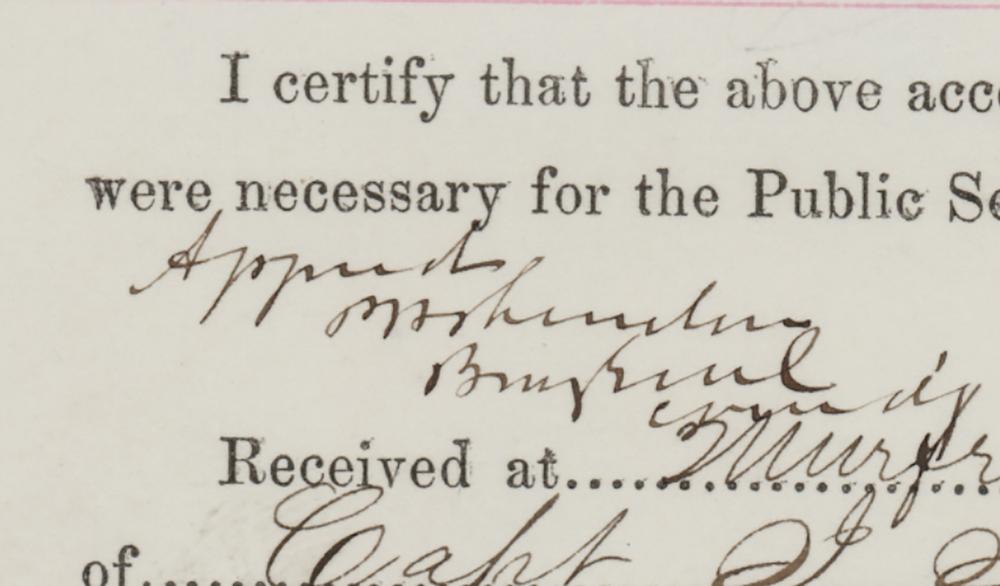 I certify that the above acc
were necessary for the Public Se
Approved
Brig Genl
comdg
Received at....Murfr
of....Capt J